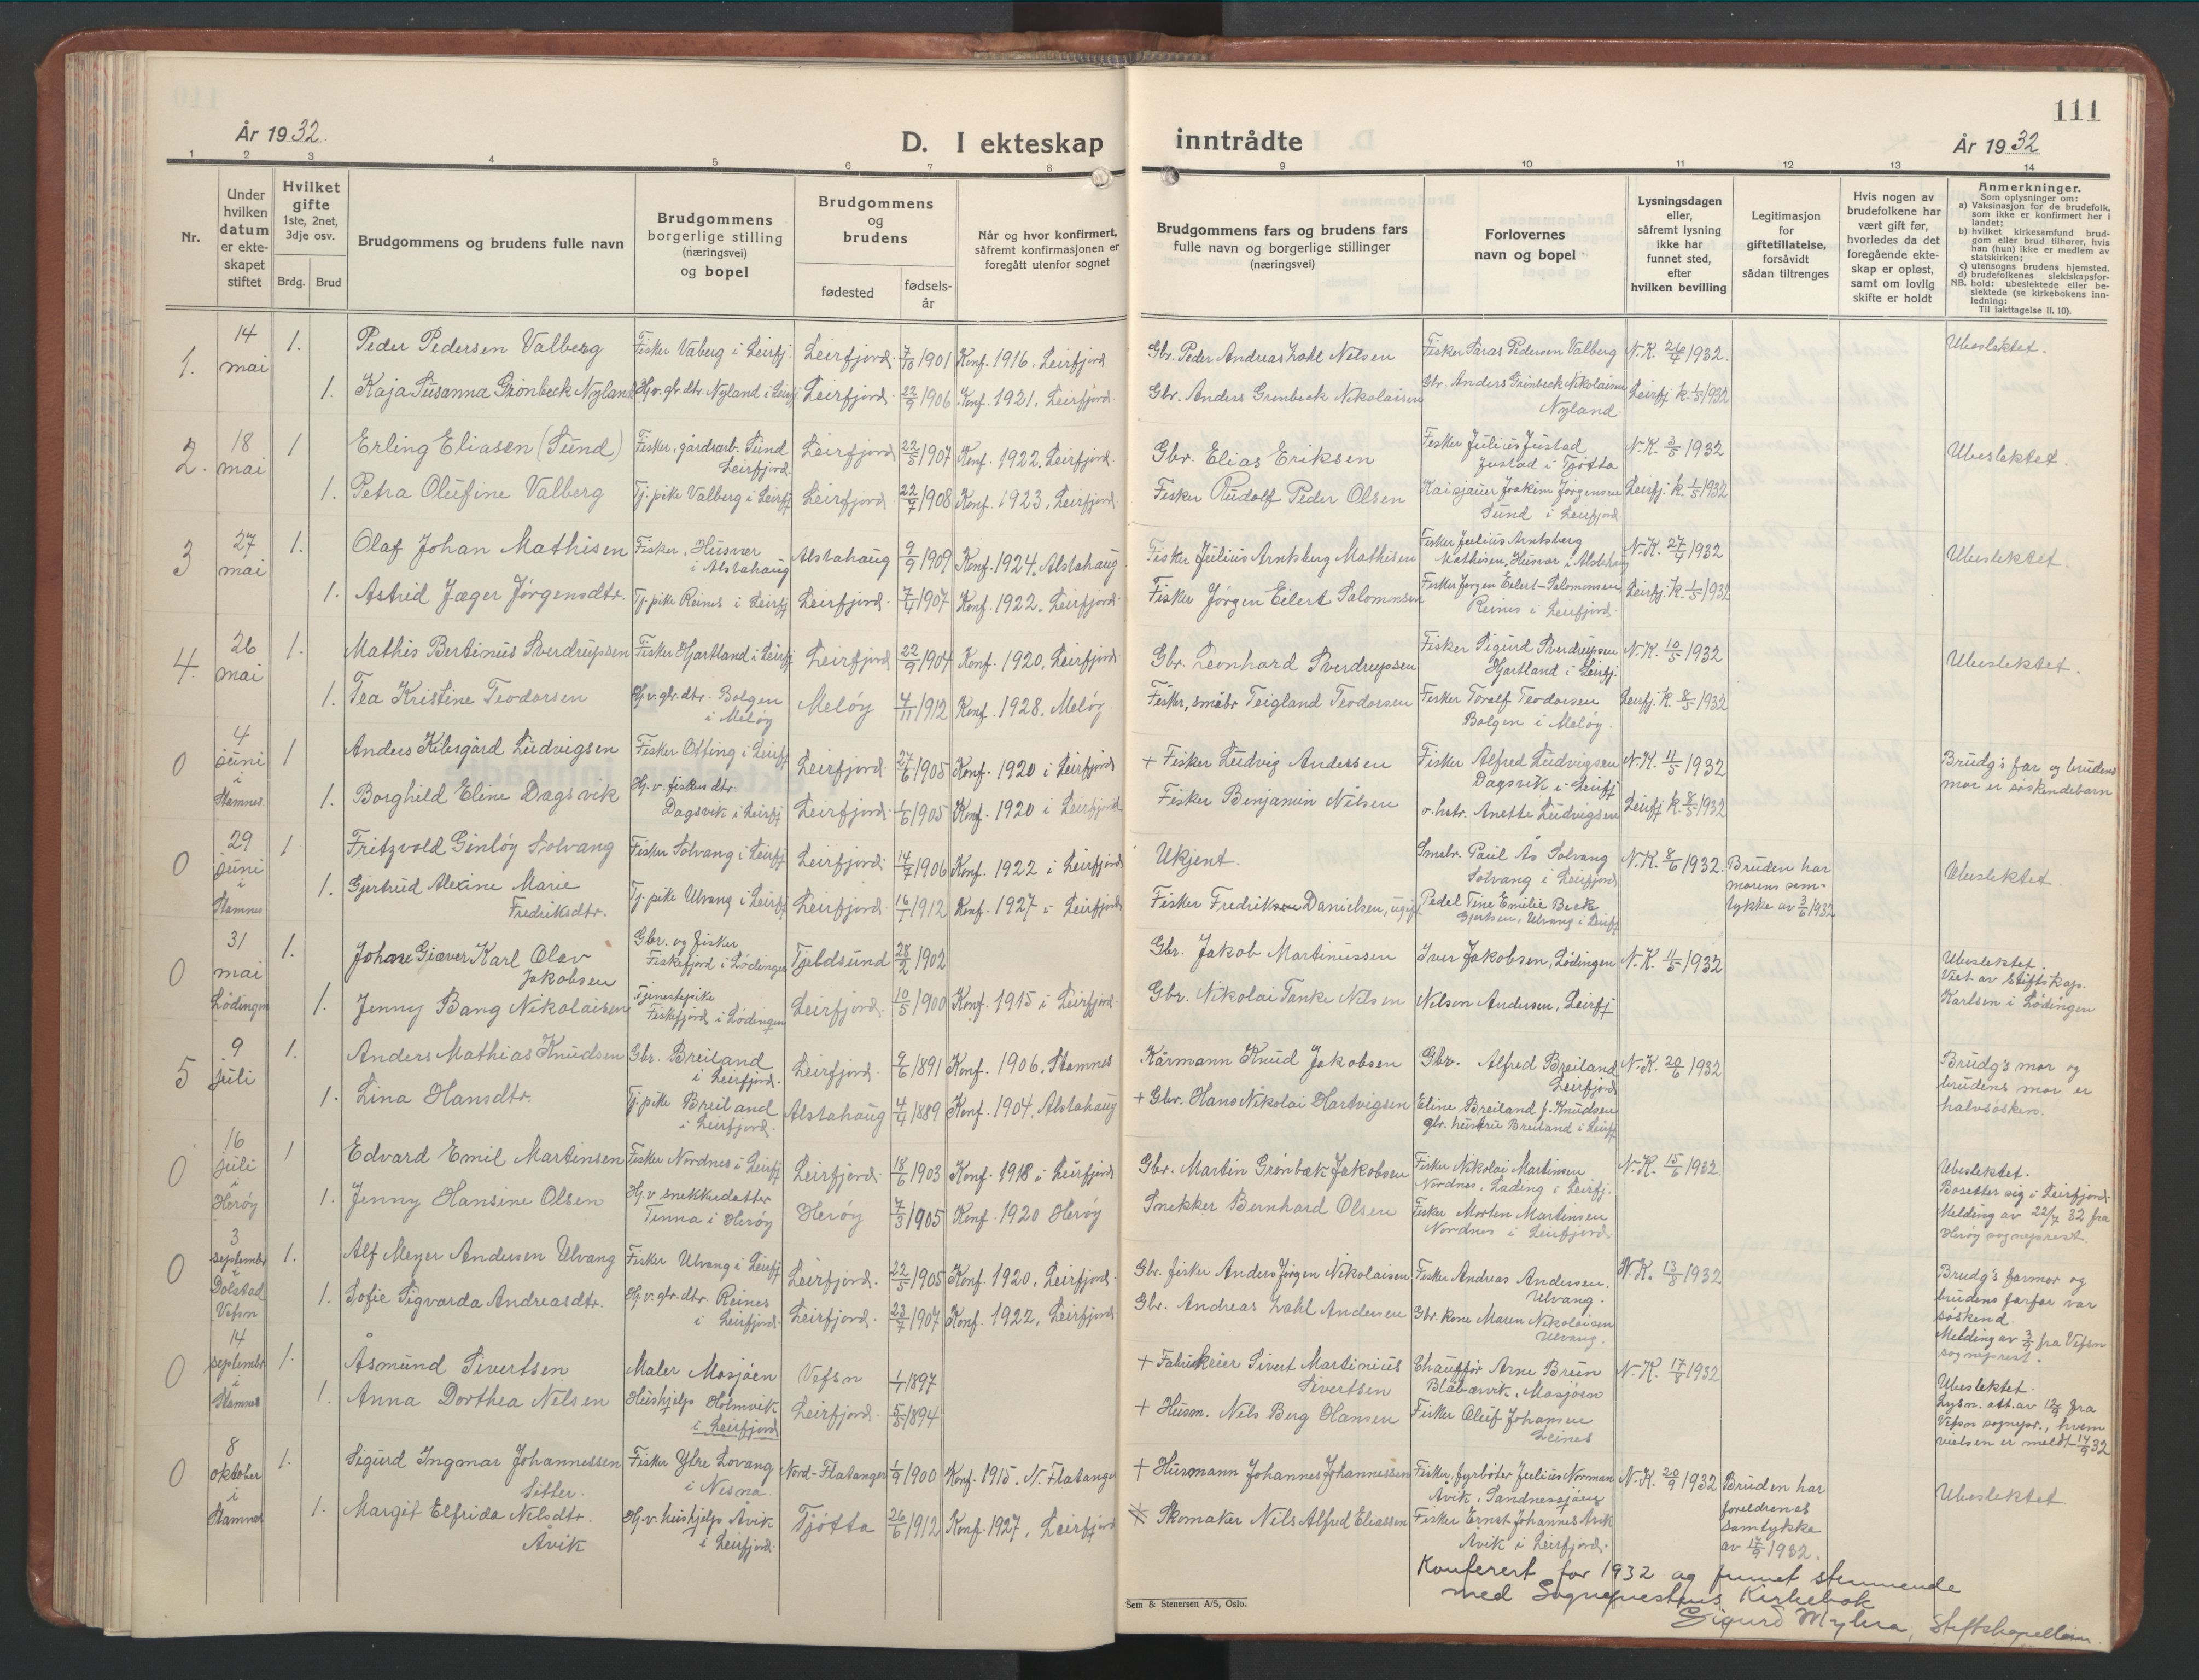 111
År 1932.
D. I ekteskap inntrådte
År 1932
1 2 3 4 5 6 7 8 9 10 11 12 13 14
Nr.
Under hvilken datum er ekteskapet stiftet
Hvilket gifte 1ste, 2net, 3dje osv.
Brdg. Brud
Brudgommens og brudens fulle navn
Brudgommens borgerlige stilling (næringsvei) og bopel
Brudgommens og brudens
fødested
fødselsår
Når og hvor konfirmert, såfremt konfirmasjonen er foregått utenfor sognet
Brudgommens fars og brudens fars fulle navn og borgerlige stillinger (næringsvei)
Forlovernes navn og bopel
Lysningsdagen eller, såfremt lysning ikke har funnet sted, efter hvilken bevilling
Legitimasjon for giftetillatelse, forsåvidt sådan tiltrenges
Hvis nogen av brudefolkene har vært gift før, hvorledes da det foregående ekteskap er opløst, samt om lovlig skifte er holdt
Anmerkninger.
Som oplysninger om:
a) Vaksinasjon for de brudefolk, som ikke er konfirmert her i landet;
b) hvilket kirkesamfund brudgom eller brud tilhører, hvis han (hun) ikke er medlem av statskirken;
c) utensogns brudens hjemsted.
d) brudefolkenes slektskapsforhold: ubeslektede eller beslektede (se kirkebokens innledning:
NB.
Til iakttagelse II. 10).
1. 14 mai 1. Peder Pedersen Valberg Fisker Valberg i Leirfj. Leirfjord 7/10 1901 Konf. 1916. Leirfjord Gbr. Peder Andreas Zahl Nilsen Fisker Saras Pedersen Valberg N.K. 26/4 1932. Ubeslektet.
1. Kaja Susanna Grønbeck Nyland Hj.v. gbr.dtr. Nyland i Leirfj Leirfjord 22/9 1906 Konf. 1921. Leirfjord. Gbr. Anders Grønbeck Nikolaisen Gbr. Anders Grønbeck Nikolaisen Nyland Leirfj k. 1/5 1932
2. 18 mai 1 Erling Eliasen (Sund) Fisker, gårdsarb. Sund Leirfjord. Leirfjord 22/5 1907 Konf. 1922. Leirfjord. Gbr. Elias Eriksen Fisker Julius Justad Justad i Tjøtta N.K. 3/5 1932 Ubeslektet.
1. Petra Olufine Valberg Tj. pike Valberg i Leirfj Leirfjord 22/7 1908 Konf. 1923. Leirfjord Fisker Rudolf Peder Olsen Kaisjauer Joakim Jørgensen Sund i Leirfjord Leirfj. k. 1/5 1932
3 27 mai 1. Olaf Johan Mathisen Fisker, Husvær i Alstahaug Alstahaug 9/9 1909 Konf. 1924. Alstahaug Fisker Julius Arntsberg Mathisen Fisker Julius Arntsberg Mathisen, Husvær i Alstahaug N.K. 27/4 1932 Ubeslektet.
1. Astrid Jæger Jørgensdtr. Tj. pike Reines i Leirfj Leirfjord. 7/4 1907 Konf. 1922. Leirfjord. Fisker Jørgen Eilert Salomonsen Fisker Jørgen Eilert Salomonsen Reines i Leirfjord. Leirfj. k. 1/5 1932
4. 26 mai 1. Mathis Bertinus Sverdrupsen Fisker Hjartland i Leirfj Leirfjord 22/9 1904 Konf. 1920. Leirfjord Gbr. Leonhard Sverdrupsen Fisker Sigurd Sverdrupsen Hjartland i Leirfj. N.K. 10/5 1932 Ubeslektet.
1. Tea Kristine Teodorsen Hj.v. gbr.dtr. Bolgen i Meløy Meløy 4/11 1912 Konf. 1928. Meløy Fisker, småbr Teigland Teodorsen Fisker Torolf Teodorsen Bolgen i Meløy. Leirfj. k 8/5 1932
0 4 juni i Stamnes 1 Anders Kibsgård Ludvigsen Fisker Otting i Leirfj Leirfjord. 27/6 1905 Konf. 1920 i Leirfjord + Fisker Ludvig Andersen Fisker Alfred Ludvigsen Dagsvik i Leirfj N.K. 11/5 1932 Brudg's far og brudens mor er søskendebarn
1. Borghild Eline Dagsvik Hj.v. fiskerdtr. Dagsvik i Leirfj Leirfjord. 1/6 1905 Konf. 1920 i Leirfjord Fisker Benjamin Nilsen o. hstr. Anette Ludvigsen Leirfj k. 8/5 1932
0 29 juni i Stamnes 1 Fritzvold Ginløy Solvang Fisker Solvang i Leirfj Leirfjord. 14/7 1906 Konf. 1922 i Leirfjord Ukjent. Småbr. Paul Ås Solvang Solvang i Leirfjord N.K. 8/6 1932. Bruden har morens samtykke av 3/6 1932 Ubeslektet.
1. Gjertrud Alexine Marie Fredriksdtr. Tj. pike Ulvang i Leirfj Leirfjord. 16/1 1912 Konf. 1927 i Leirfjord Fisker Fredrik Danielsen, ugift Pedel Tine Emilie Beck Gjertsen, Ulvang i Leirfj
0 31 mai Lødingen 1. Johan Giæver Karl Olav Jakobsen Gbr. og fisker Fiskefjord i Lødingen Tjeldsund 28/2 1902 Gbr. Jakob Martinussen Iver Jakobsen, Lødingen N.K. 11/5 1932 Ubeslektet. Viet av Stiftskap. Karlsen i Lødingen
1. Jenny Bang Nikolaisen Tjenestepike Fiskefjord i Lødingen Leirfjord. 10/5 1900 Konf. 1915 i Leirfjord Gbr. Nikolai Tanke Nilsen Nelson Andersen, Leirfj
5 9 juli 1. Anders Mathias Knudsen Gbr. Breiland i Leirfjord. Leirfjord. 9/6 1891 Konf. 1906. Stamnes Kårmann Knud Jakobsen Gbr. Alfred Breiland Leirfjord N.K. 20/6 1932 Brudg's mor og brudens mor er halvsøsken.
1. Lina Hansdtr. Tj. pike Breiland i Leirfjord. Alstahaug 4/4 1889 Konf. 1904. Alstahaug + Gbr. Hans Nikolai Hartvigsen Eline Breiland f. Knudsen gbr. hustru Breiland i Leirfj
0 16 juli i Herøy 1 Edvard Emil Martinsen Fisker Nordnes i Leirfj Leirfjord. 18/6 1903 Konf. 1918 i Leirfjord Gbr. Martin Grønbæk Jakobsen Fisker Nikolai Martinsen Nordnes, Lading i Leirfj. N.K. 15/6 1932 Ubeslektet. Bosetter sig i Leirfjord. Melding av 22/7 32 fra Herøy sogneprest.
1. Jenny Hansine Olsen Hj.v snekkerdatter Tenna i Herøy Herøy 7/3 1905 Konf. 1920 Herøy Snekker Bernhard Olsen Fisker Morten Martinsen Nordnes i Leirfjord
0 3 september Dolstad Vefsn 1. Alf Meyer Andersen Ulvang Fisker Ulvang i Leirfj Leirfjord. 22/5 1905 Konf. 1920. Leirfjord. Gbr. fisker Anders Jørgen Nikolaisen Fisker Andreas Andersen, Ulvang. N.K. 13/8 1932 Brudg's farmor og brudens farfar var søskend. Melding av 3/9 fra Vefsn sogneprest.
1. Sofie Sigvarda Andreasdtr. Hj.v. gbr.dtr. Reines i Leirfjord. Leirfjord. 23/7 1907 Konf. 1922. Leirfjord Gbr. Andreas Zahl Andersen Gbr. kone Maren Nikolaisen Ulvang.
0 14 septembr i Stamnes 1. Åsmund Sivertsen Maler Mosjøen Vefsn 1/1 1897 + Fabrikeier Sivert Martinius Sivertsen Chauffør Arne Brun Blåbærvik, Mosjøen N.K. 17/8 1932 Ubeslektet. Lysn. att. av 12/9 fra Vefsn sognepr., hvem vielsen er meldt 14/9 32
1. Anna Dorthea Nilsen Hushjelp Holmvik i Leirfjord Leirfjord. 5/5 1894 + Husm. Nils Berg Hansen Fisker Oluf Johansen Leines
0 8 oktober i Stamnes 1. Sigurd Ingmar Johannessen Sitter. Fisker Ytre Lovang i Nesna. Nord-Flatanger 1/9 1900 Konf. 1915. N. Flatanger + Husmann Johannes Johannessen Fisker, fyrbøter Julius Norman Åvik, Sandnessjøen N.K. 20/9 1932 Bruden har foreldrenes samtykke av 17/9 1932. Ubeslektet
1. Margit Elfrida Nilsdtr. Åvik Hj.v. hushjelp Åvik i Leirfjord. Tjøtta 26/6 1912 Konf. 1927, Leirfjord Skomaker Nils Alfred Eliassen Fisker Ernst Johannes Åvik Åvik i Leirfjord.
Konferert for 1932 og funnet stemmende
med Sogneprestens Kirkebok
Sigurd Myhra, Stiftskapellan.
Sem & Stenersen A/S, Oslo.